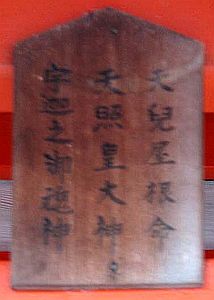 天兒屋根命
天照皇大神
宇迦之御魂神